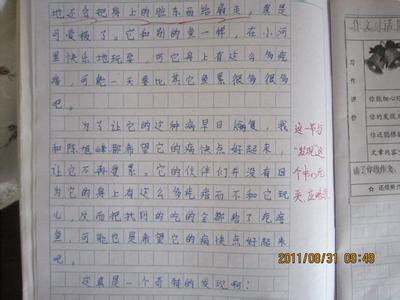 地还会把身上的脏东西给扇走，真是
可爱极了。它和别的鱼一样，在小河
里快乐地玩耍，可它身上有这么多疙
瘩，可能一天要比其它鱼累很多很多
吧。
为了让它的这种病早日病复，我
和陈旭峰都希望它的病快点好起来，
让它不再受累。它的伙伴们并没有因
为它的身上有这么多疙瘩而不和它玩
儿，反而把找到的吃的全都给了疙瘩
鱼，可能也是希望它的病快点好起来
吧。
这真是一个奇特的发现啊！
这一节与
"发现"这
个中心无
关，应略写
写
作
评
价
你能细心
你的发现
你还能
文章内容
2011/08/31 09:49